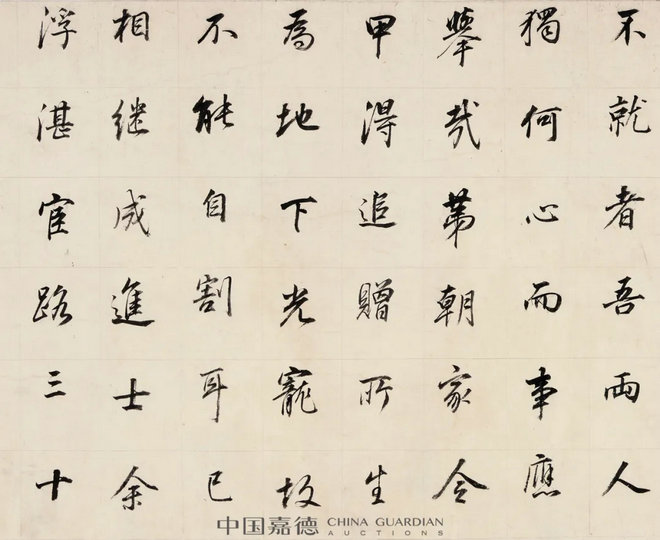 不就者吾兩人
獨何心而事應
舉哉第朝家令
甲得追贈所生
為地下光寵故
不能自割耳已
相继成進士余
浮湛宦路三十
中国嘉德 CHINA GUARDIAN AUCTIONS